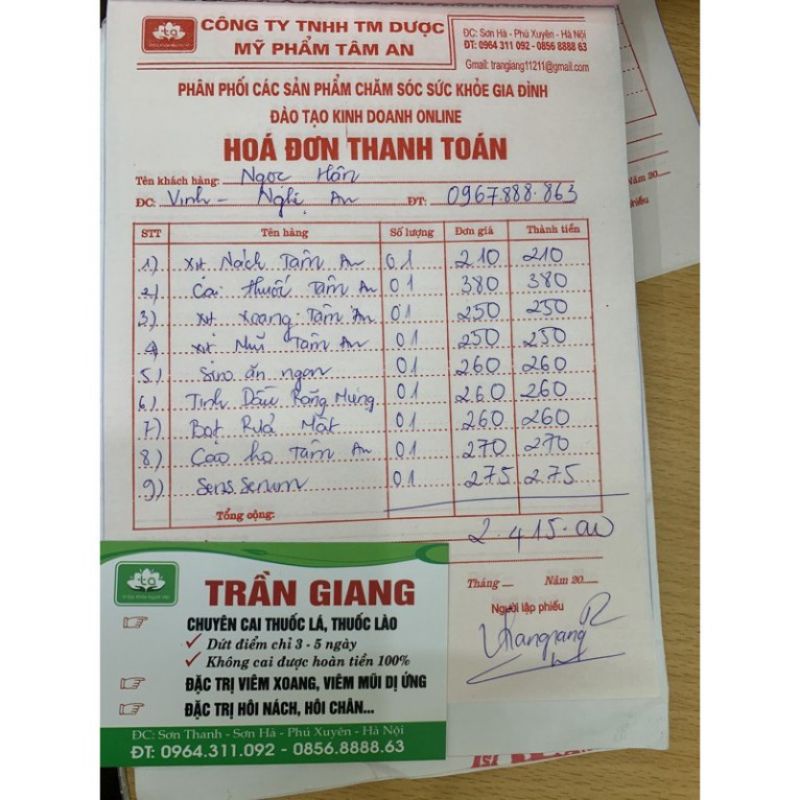 CÔNG TY TNHH TM DƯỢC
MỸ PHẨM TÂM AN
ĐC: Sơn Hà - Phú Xuyên - Hà Nội
ĐT: 0964 311 092 - 0856 8888 63
Gmail: trangiang11211@gmail.com
PHÂN PHỐI CÁC SẢN PHẨM CHĂM SÓC SỨC KHỎE GIA ĐÌNH
ĐÀO TẠO KINH DOANH ONLINE
HOÁ ĐƠN THANH TOÁN
Tên khách hàng: Ngọc Hân
ĐC: Vinh - Nghệ An ĐT: 0967.888.863
STT Tên hàng Số lượng Đơn giá Thành tiền
1) Xịt Nách Tâm An 01 210 210
2) Cai thuốc Tâm An 01 380 380
3) Xịt Xoang Tâm An 01 250 250
4 Xịt Mũi Tâm An 01 250 250
5) Siro ăn ngon 01 260 260
6) Tinh Dầu Răng Miệng 01 260 260
7) Bọt Rửa Mặt 01 260 260
8) Cao ho Tâm An 01 270 270
9) Sens Serum 01 275 275
Tổng cộng:
2.415.000
Tháng Năm 20
Người lập phiếu
TRẦN GIANG
CHUYÊN CAI THUỐC LÁ, THUỐC LÀO
Dứt điểm chỉ 3 - 5 ngày
Không cai được hoàn tiền 100%
ĐẶC TRỊ VIÊM XOANG, VIÊM MŨI DỊ ỨNG
ĐẶC TRỊ HÔI NÁCH, HÔI CHÂN...
ĐC: Sơn Thanh - Sơn Hà - Phú Xuyên - Hà Nội
ĐT: 0964.311.092 - 0856.8888.63
Năm 20
phiếu